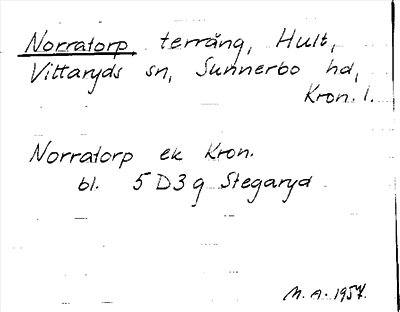 Norratorp, terräng, Hult,
Vittaryds sn, Sunnerbo hd,
Kron. l.
Norratorp ek Kron.
bl. 5 D3g Stegaryd
M. A. 1957.